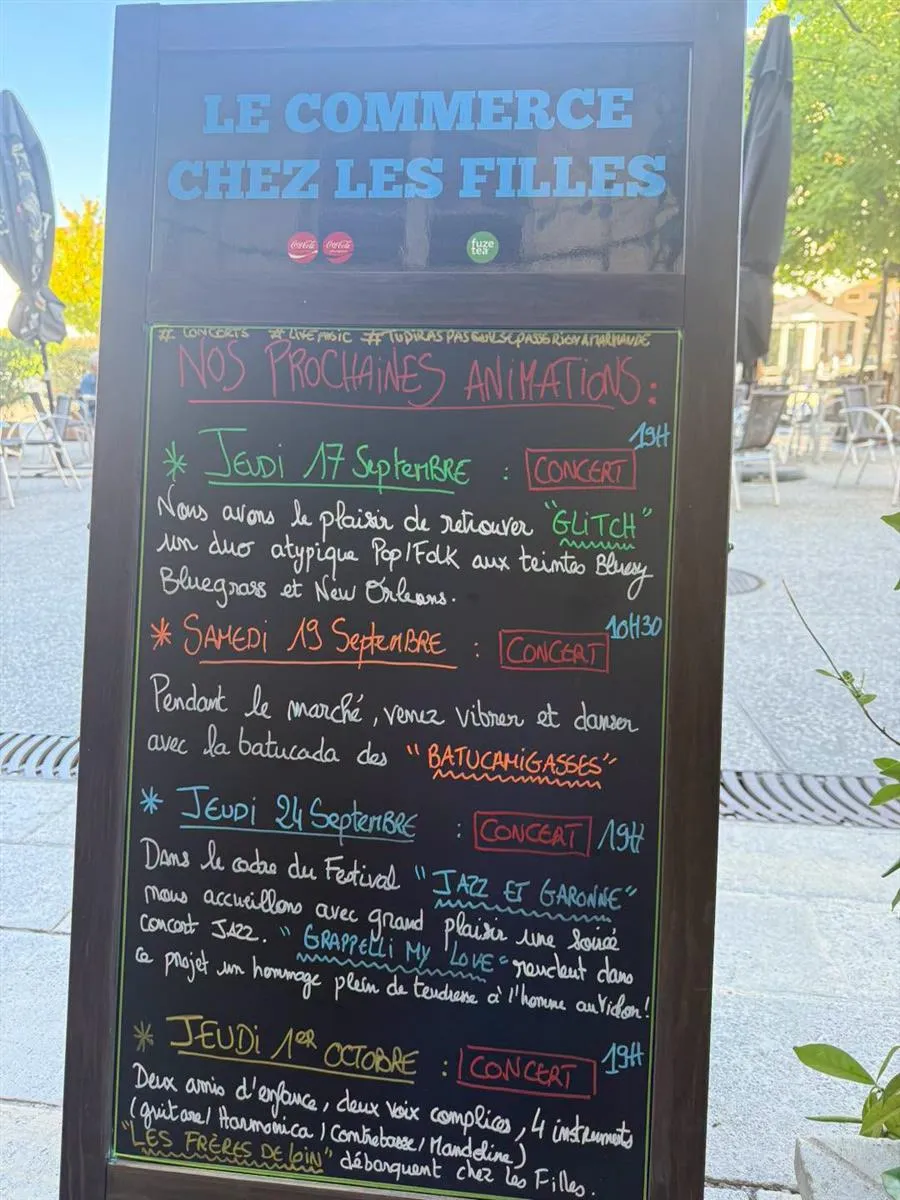 LE COMMERCE
CHEZ LES FILLES
Coca-Cola Coca-Cola fuze tea
# CONCERTS # LIVE MUSIC # TUDIRASPASQUILSEPASSERIENAMARMANDE
NOS PROCHAINES ANIMATIONS :
* JEUDI 17 SeptemBRE : CONCERT 19H
Nous avons le plaisir de retrouver "GLITCH"
un duo atypique Pop/Folk aux teintes Bluesy
Bluegrass et New Orleans.
* SAMEDI 19 SeptemBRE : CONCERT 10H30
Pendant le marché, venez vibrer et danser
avec la batucada des "BATUCAMIGASSES"
* JEUDI 24 SeptemBRE : CONCERT 19H
Dans le cadre du Festival "JAZZ ET GARONNE"
nous accueillons avec grand plaisir une soirée
concert JAZZ. "GRAPPELLI MY LOVE" rendent dans
ce projet un hommage plein de tendresse à l'homme au Violon!
* JEUDI 1ER OCTOBRE : CONCERT 19H
Deux amis d'enfance, deux voix complices, 4 instruments
(guitare/Harmonica/Contrebasse/Mandoline)
"LES FRÈRES DE LOIN" débarquent chez Les Filles.